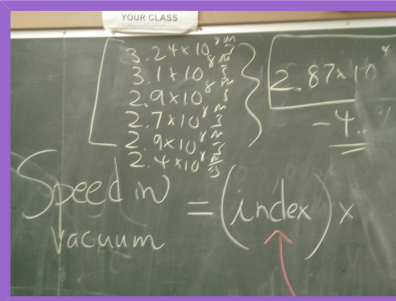 YOUR CLASS
3.24×10⁸ m/s
3.1×10⁸ m/s
2.9×10⁸ m/s
2.7×10⁸ m/s
2.9×10⁸ m/s
2.4×10⁸ m/s
2.87×10⁸
-4.
Speed in
vacuum
= (index) ×